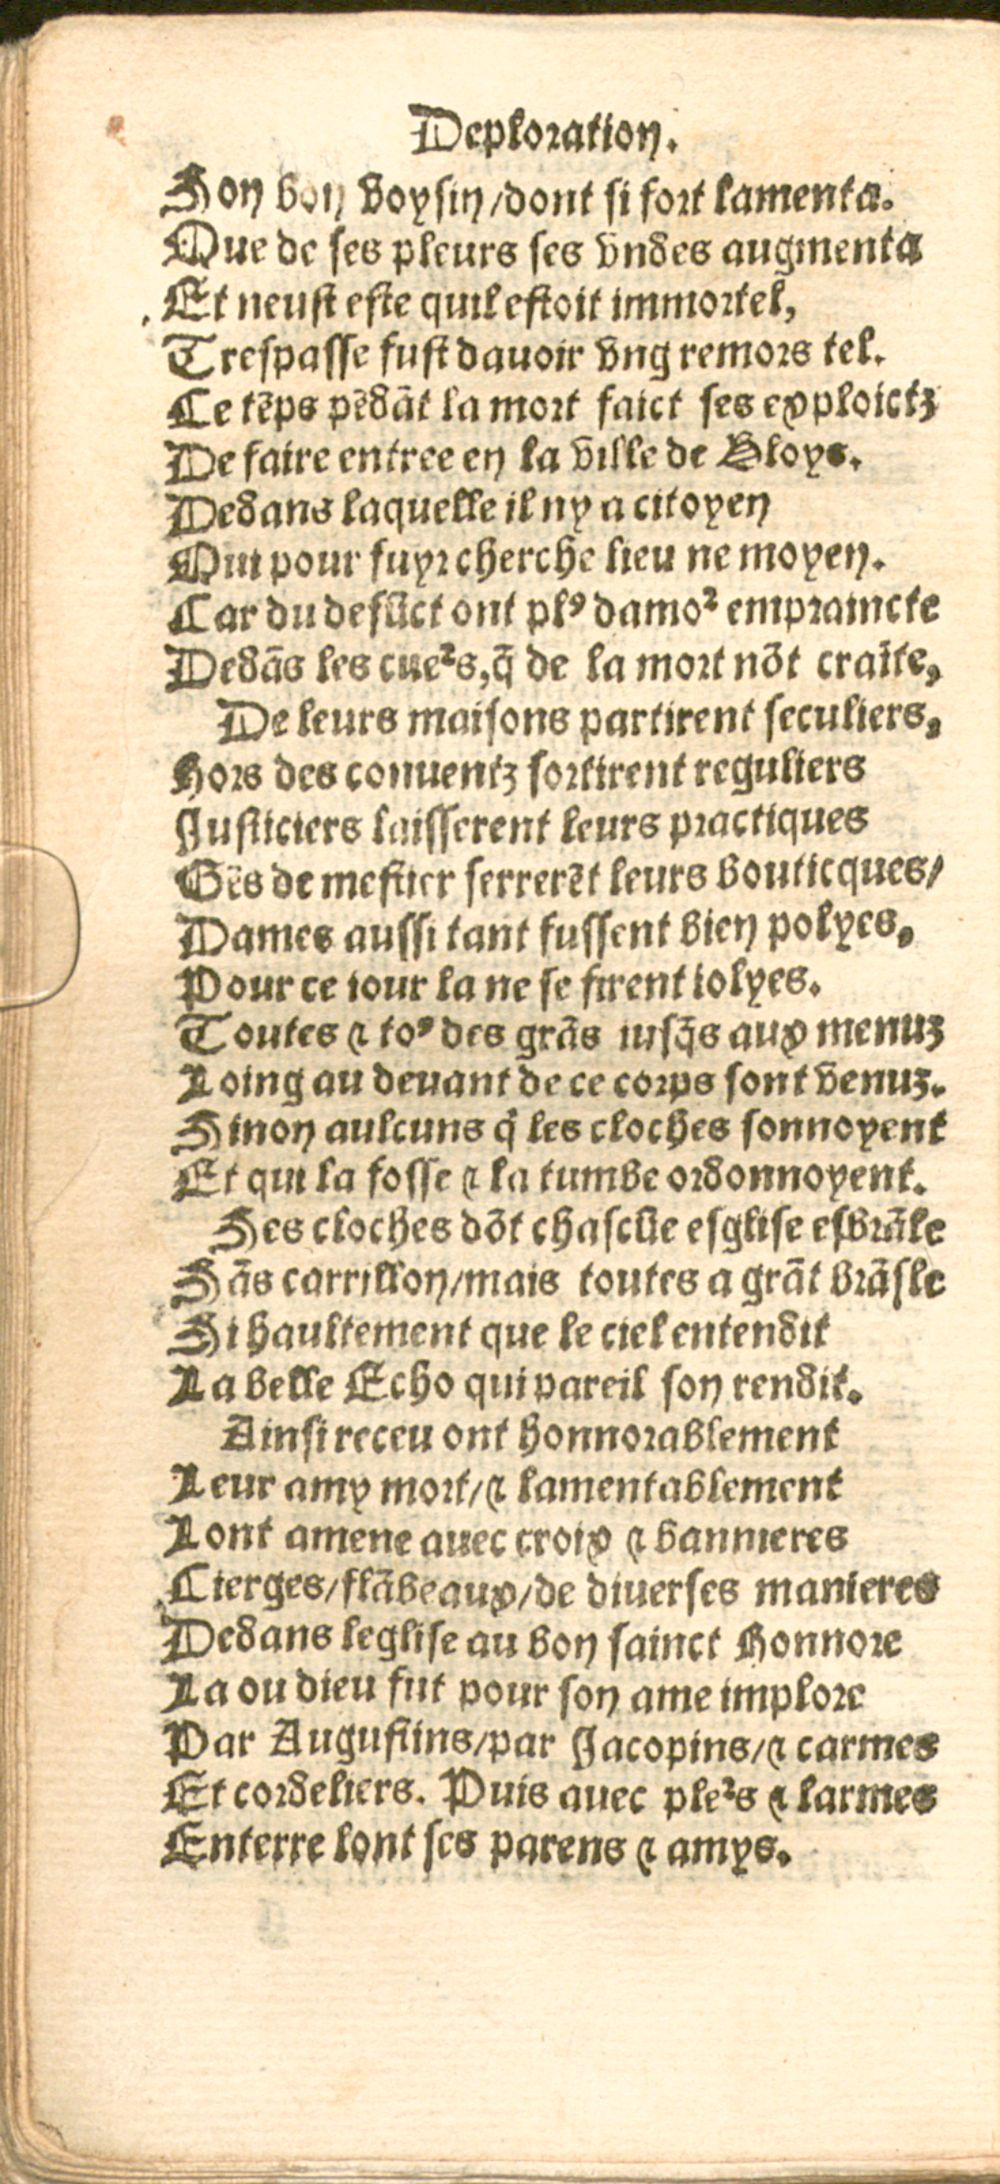 Deploration.
Son bon voysin/dont si fort lamenta.
Que de ses pleurs ses vndes augmenta
Et neust este quil estoit immortel,
Trespasse fust dauoir vng remors tel.
Ce tẽps pẽdãt la mort faict ses exploictz
De faire entree en la ville de Bloys.
Dedans laquelle il ny a citoyen
Qui pour fuyr cherche lieu ne moyen.
Car du defũct ont plꝰ damoᷣ empraincte
Dedãs les cueᷣs, q̃ de la mort nõt craĩte,
De leurs maisons partirent seculiers,
Hors des conuentz sortirent reguliers
Justiciers laisserent leurs practiques
Gẽs de mestier serrerẽt leurs bouticques/
Dames aussi tant fussent bien polyes,
Pour ce iour la ne se firent iolyes.
Toutes ⁊ toꝰ des grãs iusq̃s aux menuz
Loing au deuant de ce corps sont venuz.
Sinon aulcuns q̇ les cloches sonnoyent
Et qui la fosse ⁊ la tumbe ordonnoyent.
Ses cloches dõt chascũe esglise esbrãle
Sãs carrillon/mais toutes a grãt brãsle
Si haultement que le ciel entendit
La belle Echo qui pareil son rendit.
Ainsi receu ont honnorablement
Leur amy mort/⁊ lamentablement
Lont amene auec croix ⁊ bannieres
Cierges/flãbeaux/de diuerses manieres
Dedans leglise au bon sainct Honnore
La ou dieu fut pour son ame implore
Par Augustins/par Jacopins/⁊ carmes
Et cordeliers. Puis auec pleᷣs ⁊ larmes
Enterre lont ses parens ⁊ amys.